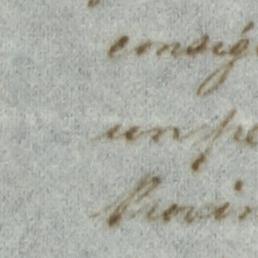 consig
un pe
Provin